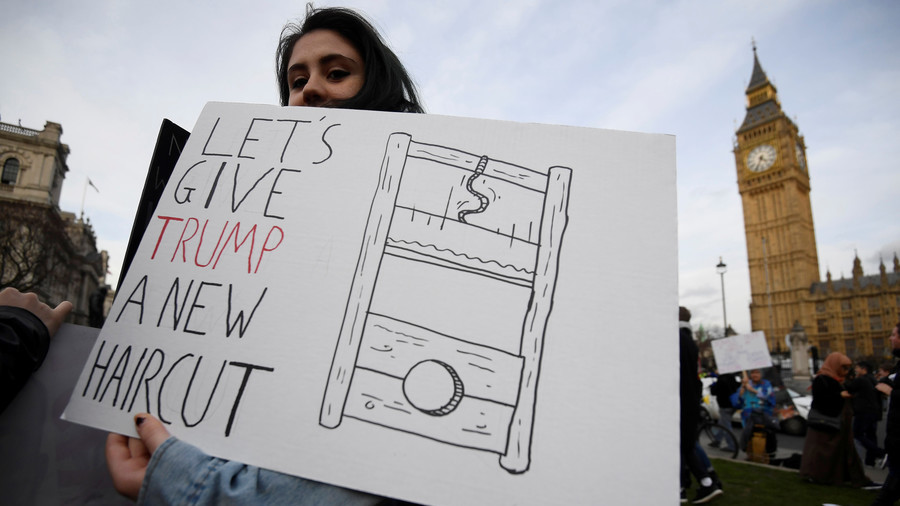 LET'S
GIVE
TRUMP
A NEW
HAIRCUT